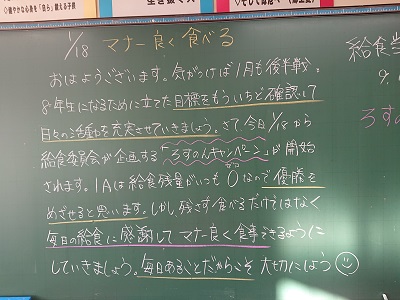 1/18 マナー良く食べる
おはようございます。気がつけば1月も後半戦。
8年生になるために立てた目標をもういちど確認して
日々の活動を充実させていきましょう。さて、今日1/18から
給食委員会が企画する「ろすのんキャンペーン」が開始
されます。1Aは給食残量がいつも0なので優勝を
めざせると思います。しかし、残さず食べるだけではなく
毎日の給食に感謝してマナー良く食事できるように
していきましょう。毎日あることだからこそ 大切にしよう
給食
9.
ろすの